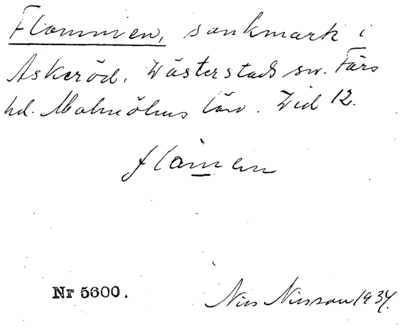 Flommen, sankmark i
Askeröd, Wästerstads sn. Färs
hd. Malmöhus län. Vid 12.
flåmen
Nr 5600.
Nils Nilsson 1934.